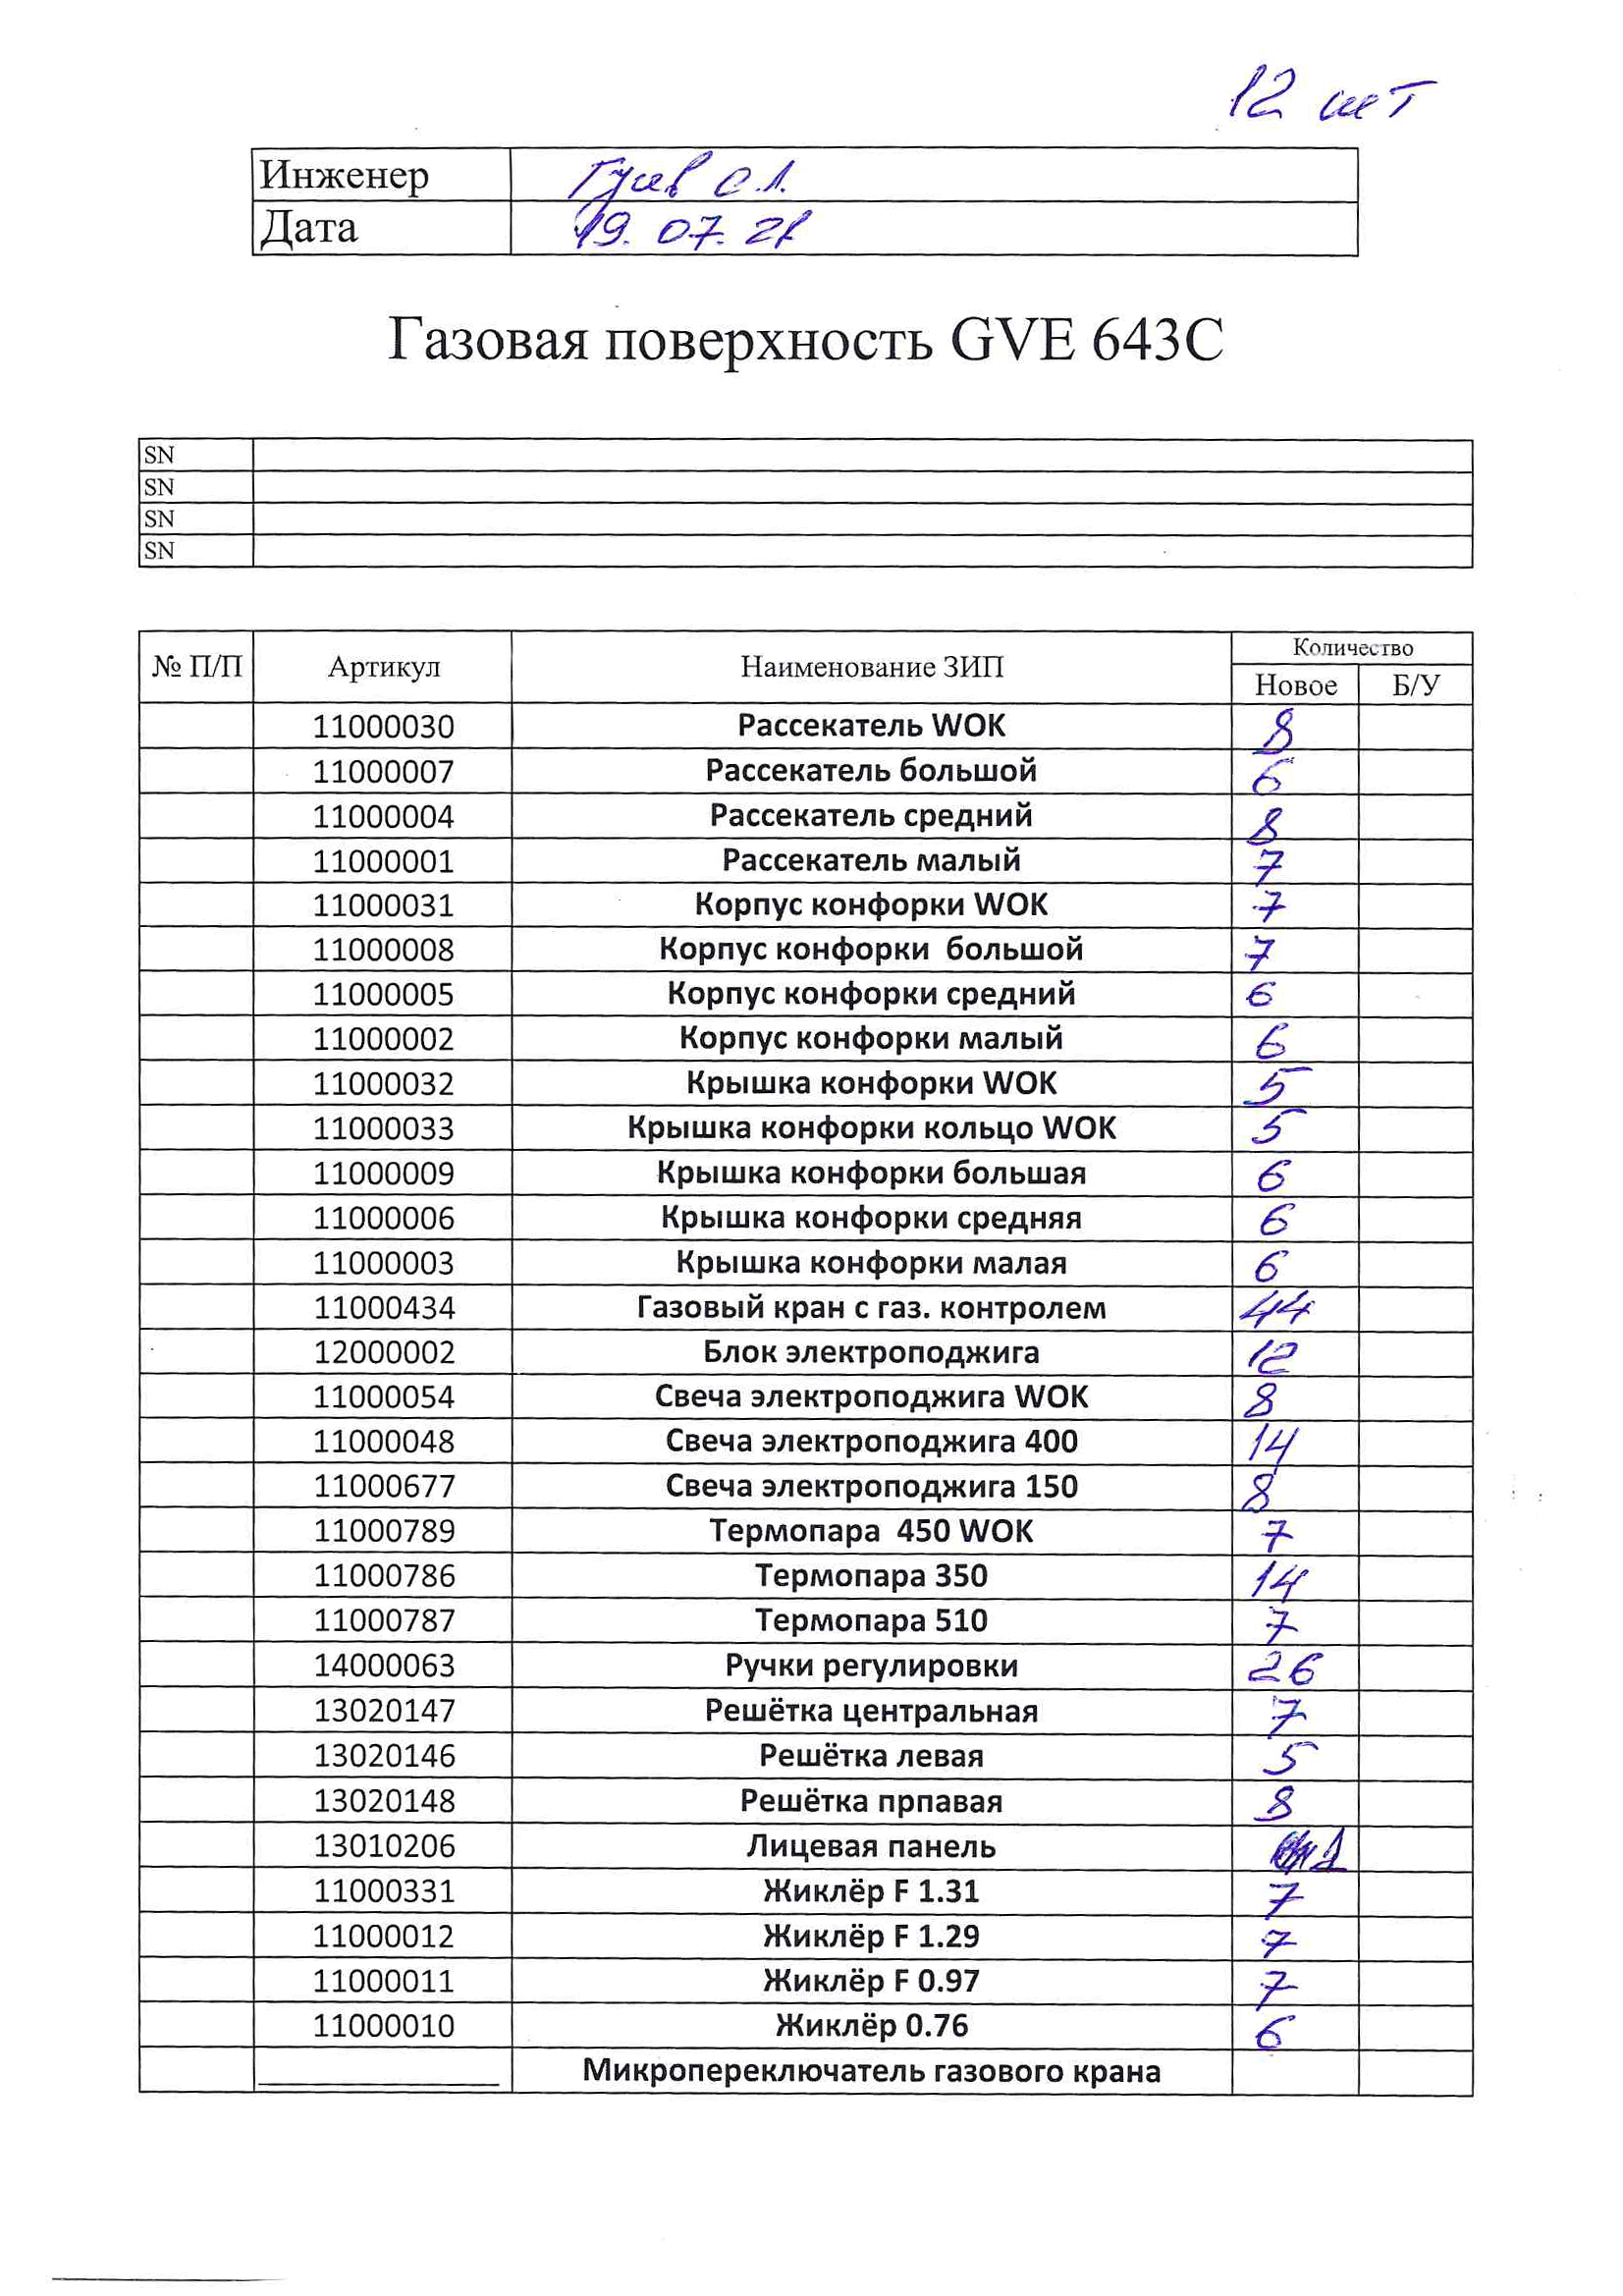 12 шт
Инженер Гусев С.Л.
Дата 19.07.21
Газовая поверхность GVE 643C
SN
SN
SN
SN
№ П/П Артикул Наименование ЗИП Количество
Новое Б/У
11000030 Рассекатель WOK 8
11000007 Рассекатель большой 6
11000004 Рассекатель средний 8
11000001 Рассекатель малый 7
11000031 Корпус конфорки WOK 7
11000008 Корпус конфорки большой 7
11000005 Корпус конфорки средний 6
11000002 Корпус конфорки малый 6
11000032 Крышка конфорки WOK 5
11000033 Крышка конфорки кольцо WOK 5
11000009 Крышка конфорки большая 6
11000006 Крышка конфорки средняя 6
11000003 Крышка конфорки малая 6
11000434 Газовый кран с газ. контролем 44
12000002 Блок электроподжига 12
11000054 Свеча электроподжига WOK 8
11000048 Свеча электроподжига 400 14
11000677 Свеча электроподжига 150 8
11000789 Термопара 450 WOK 7
11000786 Термопара 350 14
11000787 Термопара 510 7
14000063 Ручки регулировки 26
13020147 Решётка центральная 7
13020146 Решётка левая 5
13020148 Решётка прпавая 8
13010206 Лицевая панель 1
11000331 Жиклёр F 1.31 7
11000012 Жиклёр F 1.29 7
11000011 Жиклёр F 0.97 7
11000010 Жиклёр 0.76 6
Микропереключатель газового крана